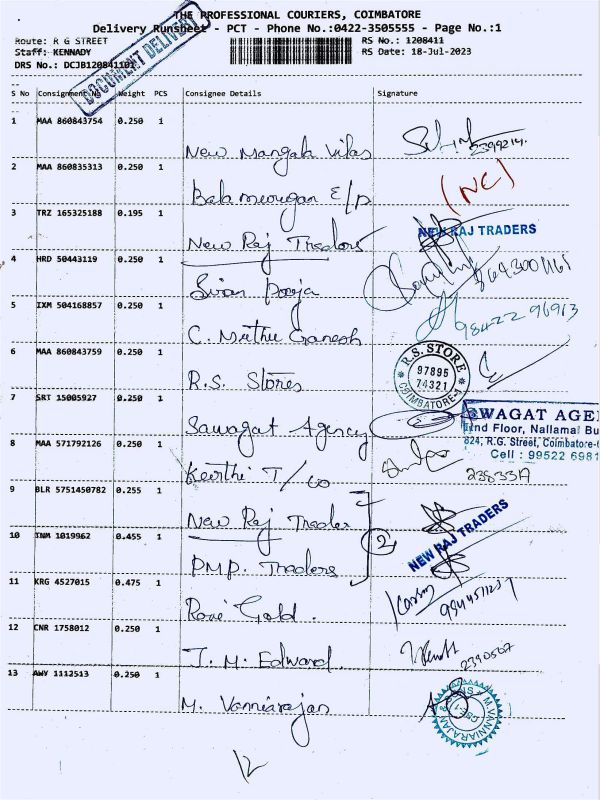 THE PROFESSIONAL COURIERS, COIMBATORE
Delivery Runsheet - PCT - Phone No.:0422-3505555 - Page No.:1
Route: R G STREET
RS No.: 1208411
Staff: KENNADY
RS Date: 18-Jul-2023
DRS No.: DCJB120841101
DOCUMENT DELIVERY
S No Consignment No Weight PCS Consignee Details Signature
1 MAA 860843754 0.250 1
New Mangala Vilas 2399214.
2 MAA 860835313 0.250 1
Balamurugan E/P (NC)
3 TRZ 165325188 0.195 1
New Raj Traders NEW RAJ TRADERS
4 HRD 50443119 0.250 1
Sivan Pooja
5 IXM 504168857 0.250 1
C. Muthu Ganesh 98422 96913
6 MAA 860843759 0.250 1
R.S. Stores R.S. STORE 97895 74321 COIMBATORE-1
7 SRT 15005927 0.250 1
Sawagat Agency
SWAGAT AGE
2nd Floor, Nallamai Bu
824, R.G. Street, Coimbatore-
Cell : 99522 6981
8 MAA 571792126 0.250 1
Keerthi T/co
9 BLR 5751450782 0.255 1
New Raj Trader
2
NEW RAJ TRADERS
10 INM 1019962 0.455 1
P.M.P. Traders
11 KRG 4527015 0.475 1
Rose Gold.
12 CNR 1758012 0.250 1
J. M. Edward. 2390507
13 AWY 1112513 0.250 1
M. Vanniarajan M.VANNIARAJAN
12